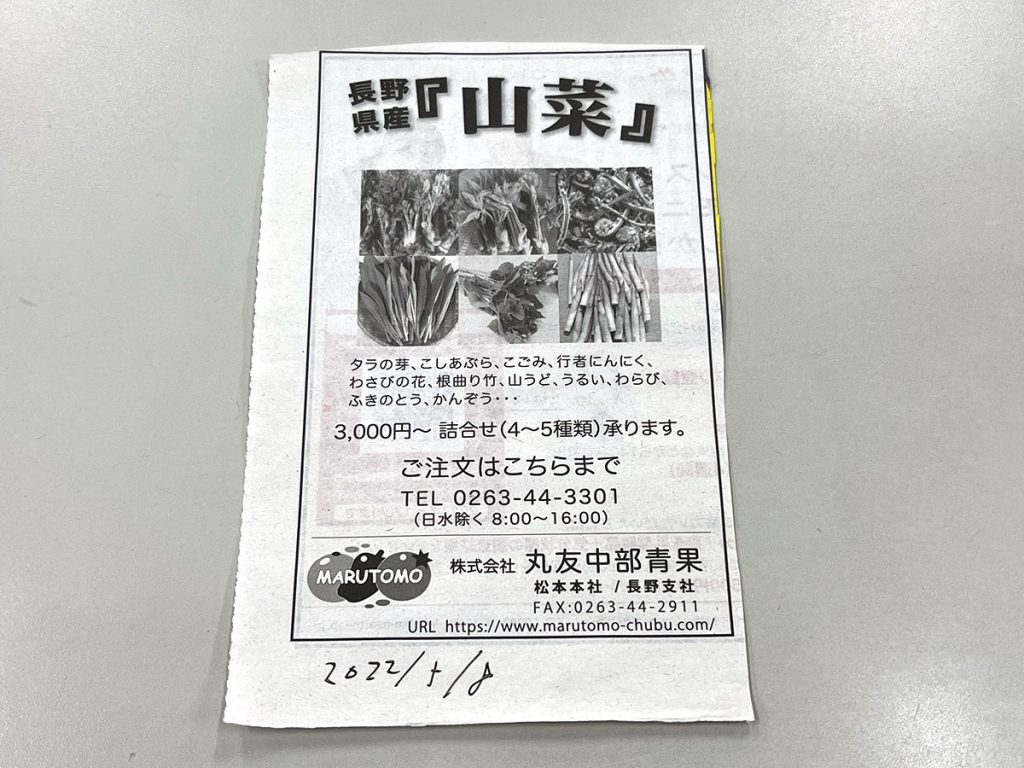 長野
県産
『山菜』
タラの芽、こしあぶら、こごみ、行者にんにく、
わさびの花、根曲り竹、山うど、うるい、わらび、
ふきのとう、かんぞう・・・
3,000円～ 詰合せ（4～5種類）承ります。
ご注文はこちらまで
TEL 0263-44-3301
（日水除く 8:00～16:00）
MARUTOMO
株式会社 丸友中部青果
松本本社 / 長野支社
FAX:0263-44-2911
URL https://www.marutomo-chubu.com/
2022/5/8